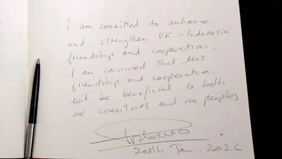 I am committed to enhance
and strengthen UK.-Indonesia
friendship and cooperation.
I am convinced that this
friendship and cooperation
will be beneficial to both
our countries and our peoples
20th Jan. 2026